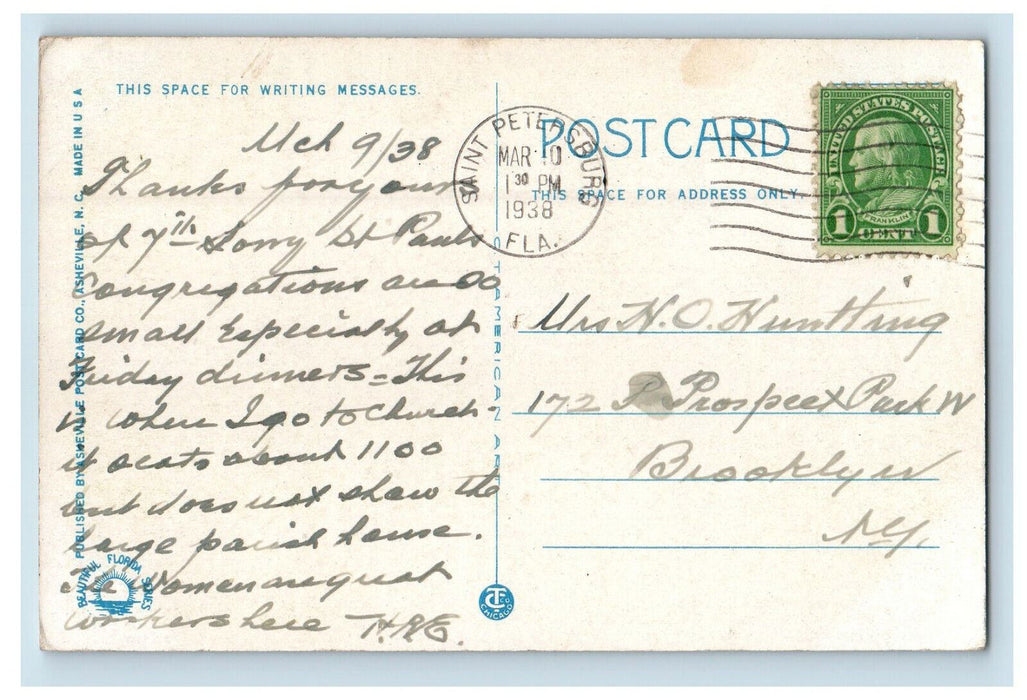 THIS SPACE FOR WRITING MESSAGES.
Mch 9/38
Thanks for yours
of 7th Sorry St Pauls
Congregations are so
small Especially at
Friday dinners - This
is where I go to church -
it seats about 1100
but does not show the
large parish house.
The Women are great
workers here H.R.E.
PUBLISHED BY ASHEVILLE POST CARD CO., ASHEVILLE, N. C. MADE IN U S A
BEAUTIFUL FLORIDA SERIES
C. T. AMERICAN ART
CT CO CHICAGO
SAINT PETERSBURG
MAR 10
1 30 PM
1938
FLA.
POST CARD
THIS SPACE FOR ADDRESS ONLY.
UNITED STATES POSTAGE
FRANKLIN
1 CENT 1
Mrs N. O. Huntting
172 Prospect Park W
Brooklyn
NY.